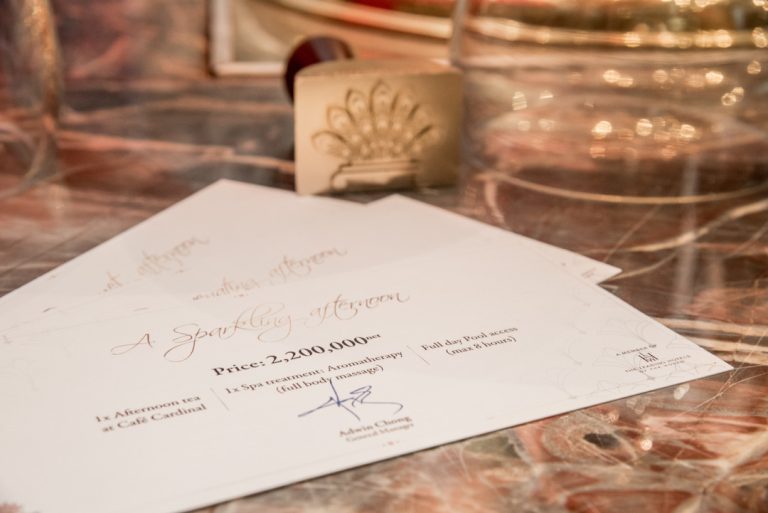 A Sparkling afternoon
Price: 2,200,000net
1x Afternoon tea
at Café Cardinal
1x Spa treatment: Aromatherapy
(full body massage)
Full day Pool access
(max 8 hours)
Adwin Chong
General Manager
A MEMBER OF
THE LEADING HOTELS
OF THE WORLD
at afternoon
afternoon